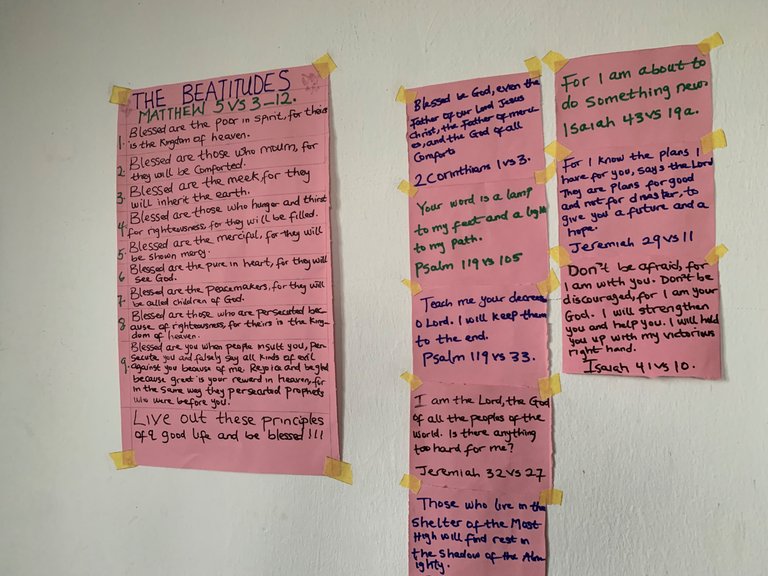 THE BEATITUDES
MATTHEW 5 VS 3-12.
1. Blessed are the poor in spirit, for theirs
is the kingdom of heaven.
2. Blessed are those who mourn, for
they will be comforted.
3. Blessed are the meek, for they
will inherit the earth.
4. Blessed are those who hunger and thirst
for righteousness, for they will be filled.
5. Blessed are the merciful, for they will
be shown mercy.
6. Blessed are the pure in heart, for they will
see God.
7. Blessed are the peacemakers, for they will
be called children of God.
8. Blessed are those who are persecuted bec-
ause of righteousness, for theirs is the King-
dom of heaven.
9. Blessed are you when people insult you, per-
secute you and falsely say all kinds of evil
against you because of me. Rejoice and be glad
because great is your reward in heaven, for
in the same way they persecuted prophets
who were before you.
Live out these principles
of a good life and be blessed!!!
Blessed be God, even the
Father of our Lord Jesus
Christ, the Father of merci-
es, and the God of all
Comforts
2 Corinthians 1 vs 3.
Your word is a lamp
to my feet and a light
to my path.
Psalm 119 vs 105
Teach me your decrees
O Lord. I will keep them
to the end.
Psalm 119 vs 33.
I am the Lord, the God
of all the peoples of the
world. Is there anything
too hard for me?
Jeremiah 32 vs 27
Those who live in the
Shelter of the Most
High will find rest in
the shadow of the Alm-
ighty.
For I am about to
do something new.
Isaiah 43 vs 19a.
For I know the plans I
have for you, says the Lord
They are plans for good
and not for disaster, to
give you a future and a
hope.
Jeremiah 29 vs 11
Don't be afraid, for
I am with you. Don't be
discouraged, for I am your
God. I will strengthen
you and help you. I will hold
you up with my victorious
right hand.
Isaiah 41 vs 10.